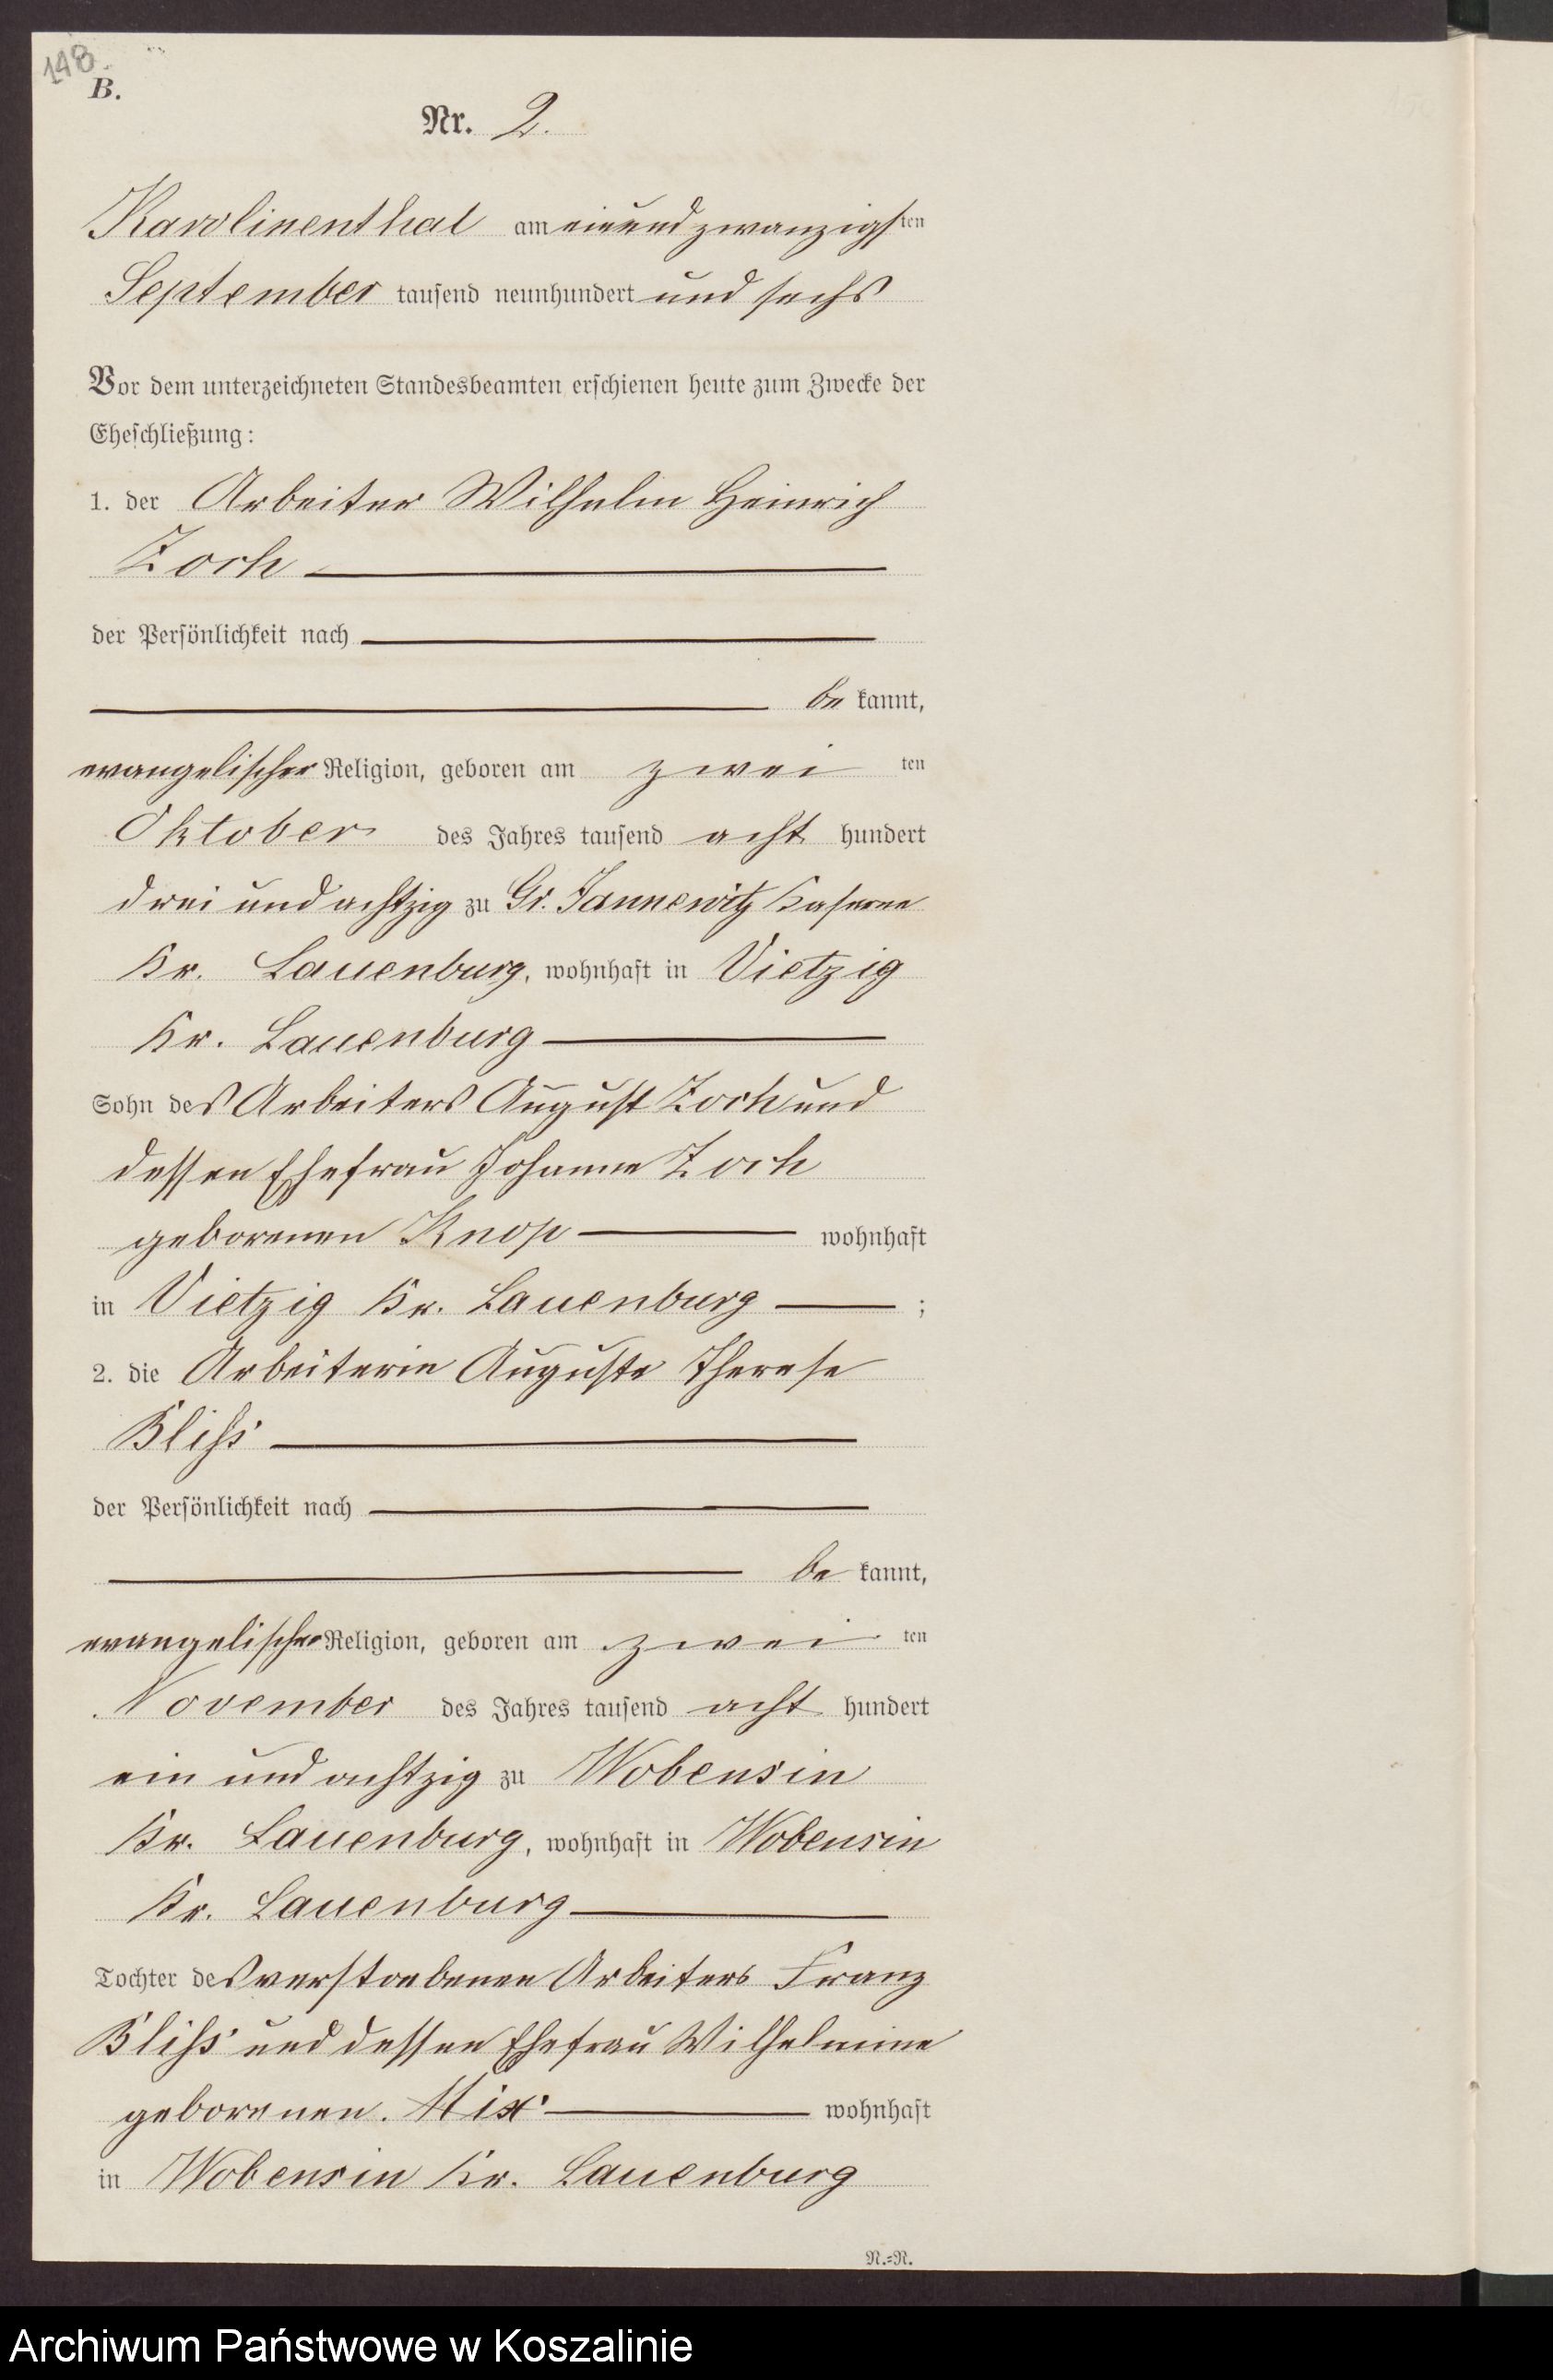 148.
B.
Nr. 2.
Karolinenthal am einund zwanzigsten
September tausend neunhundert und sechs
Vor dem unterzeichneten Standesbeamten erschienen heute zum Zwecke der
Eheschließung:
1. der Arbeiter Wilhelm Heinrich
Zoch
der Persönlichkeit nach
be kannt,
evangelischer Religion, geboren am zwei ten
Oktober des Jahres tausend acht hundert
drei und achtzig zu Gr. Jannewitz Kaserne
Kr. Lauenburg, wohnhaft in Vietzig
Kr. Lauenburg
Sohn des Arbeiters August Zoch und
dessen Ehefrau Johanne Zoch
geborenen Knop wohnhaft
in Vietzig Kr. Lauenburg ;
2. die Arbeiterin Auguste Therese
Bliß
der Persönlichkeit nach
be kannt,
evangelischer Religion, geboren am zwei ten
November des Jahres tausend acht hundert
ein und achtzig zu Wobensin
Kr. Lauenburg, wohnhaft in Wobensin
Kr. Lauenburg
Tochter des verstorbenen Arbeiters Franz
Bliß und dessen Ehefrau Wilhelmine
geborenen. Mix wohnhaft
in Wobensin Kr. Lauenburg
N.=N.
Archiwum Państwowe w Koszalinie